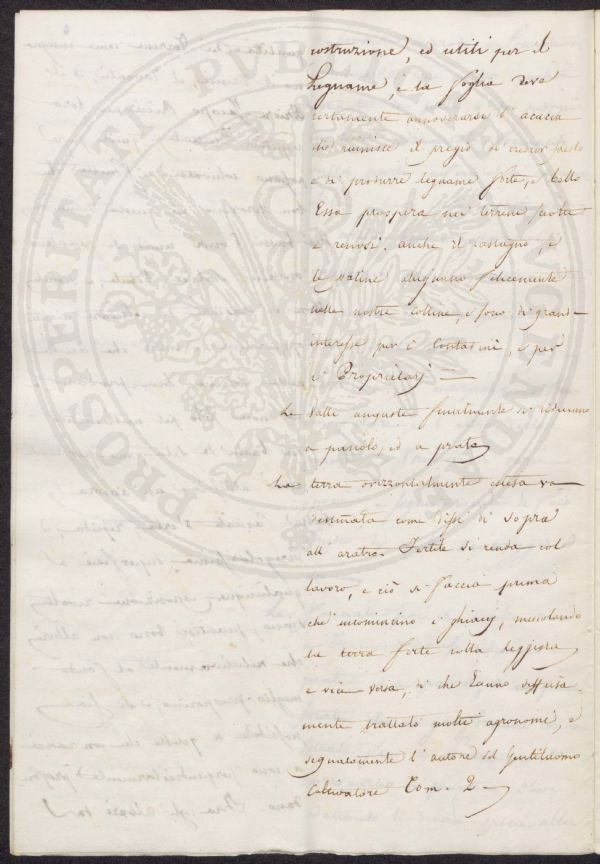 costruzione, ed utili per il
Legname, e la foglia deve
certamente annoverarsi l'acacia
che riunisce il pregio di crescer presto
e di produrre legname forte, e bello
Essa prospera nei terreni sciolti
e renosi. anche il castagno, e
le paline allignano felicemente
nelle nostre colline, e sono di grand
interesse per i Contadini, e per
i Proprietarj
Le Valli anguste finalmente si riducano
a pascolo, ed a prato
La terra orizzontalmente estesa va
destinata come dissi di sopra
all'aratro. Fertile si renda col
lavoro, e ciò si faccia prima
che incomincino i ghiacj, mescolando
la terra forte colla leggiera,
e vice versa, di che hanno diffusa
mente trattato molti agronomi, e
segnatamente l'autore del Gentiluomo
Coltivatore Tom. 2
PROSPERITATI PUBLICAE